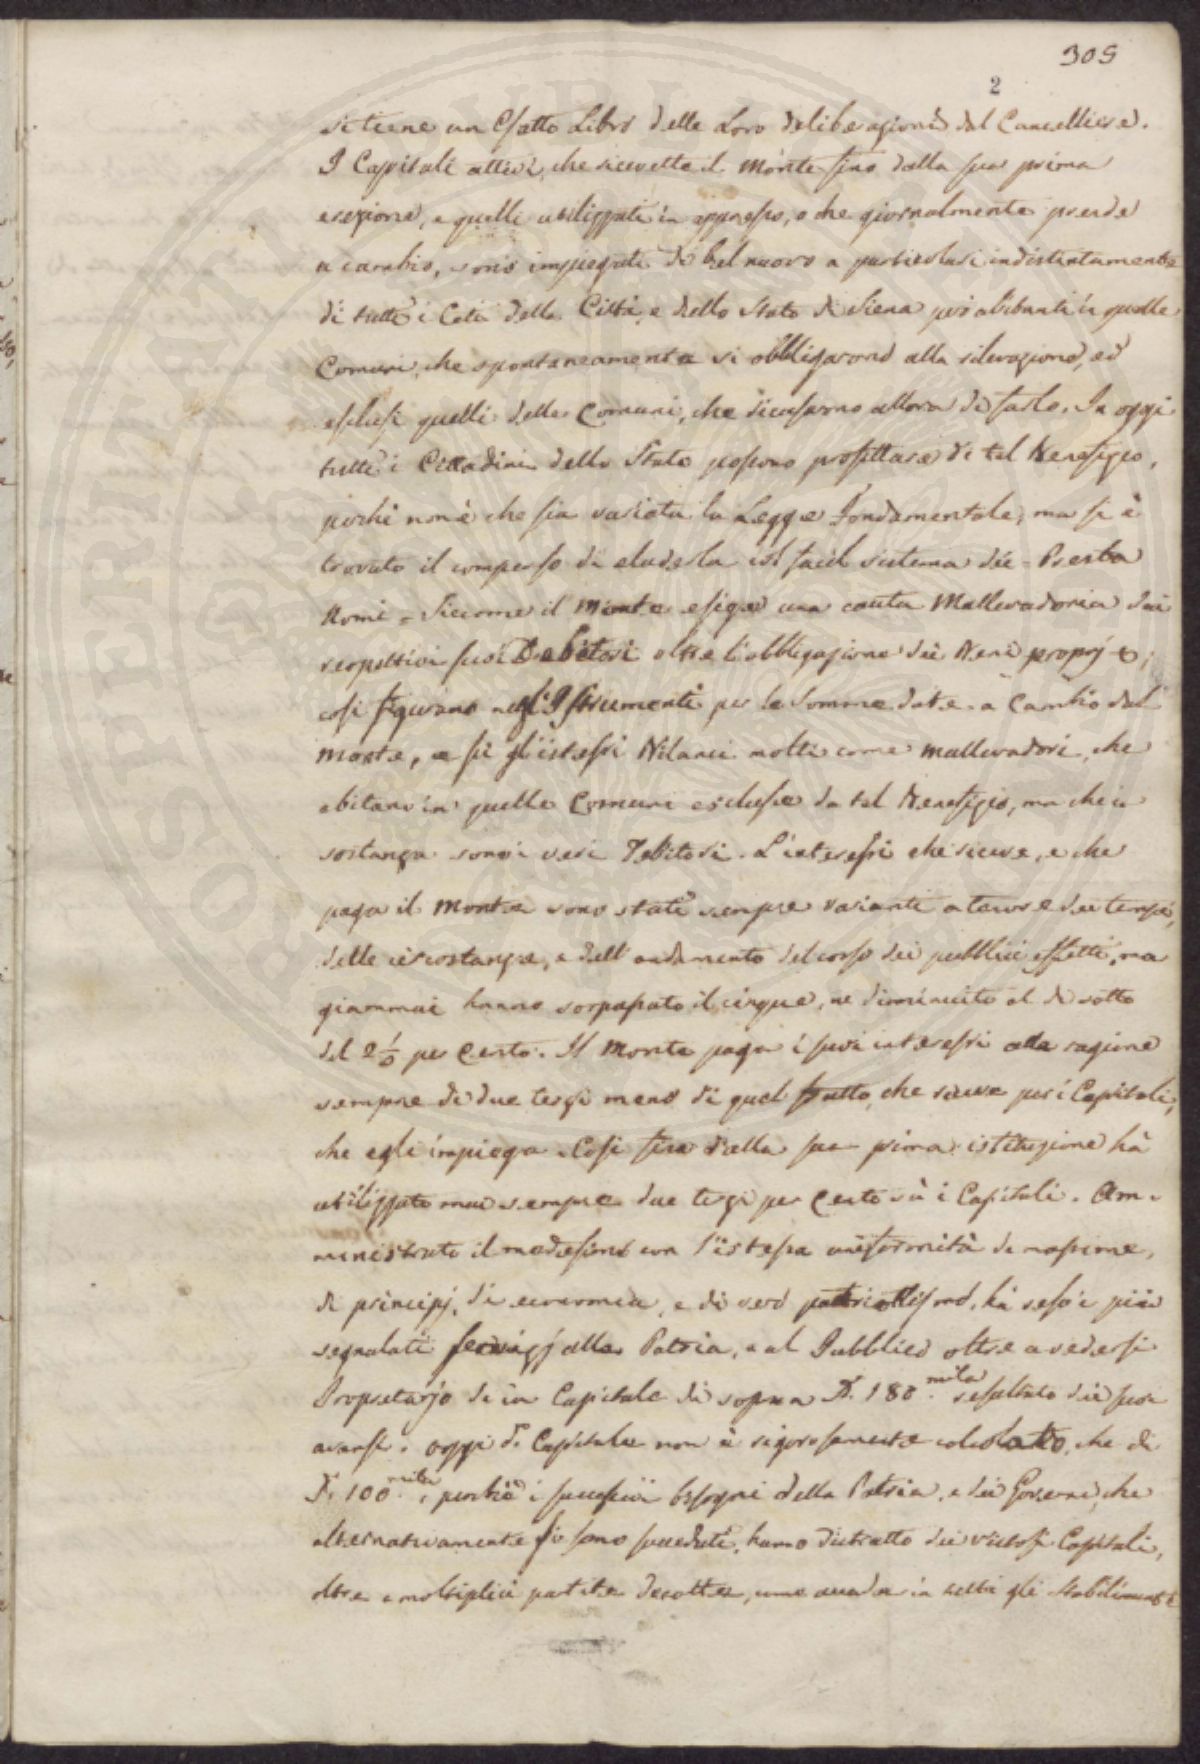 305
2
si tiene un Esatto Libro delle Loro deliberazioni dal Cancelliere.
I Capitali attivi, che ricevette il Monte fino dalla sua prima
erezione, e quelli utilizzati in appresso, o che giornalmente prende
a cambio, sono impiegati di bel nuovo a particolari indistintamente
di tutti i Ceti della Città, e dello Stato di Siena però abitanti in quelle
Comuni, che spontaneamente si obbligarono alla rilevazione, ed
esclusi quelli delle Comuni, che ricusarno allora di farlo. In oggi
tutti i Cittadini dello Stato possono profittare di tal Benefizio,
poichè non è che sia variata la Legge fondamentale, ma si è
trovato il compenso di eluderla col facil sistema dei = Presta
Nomi = Siccome il Monte esige una cauta Mallevadoria dai
respettivi suoi Debitori oltre l'obbligazione dei Beni proprj
così figurano negl'Istrumenti per le Somme date a Cambio dal
Monte, e sù gl'istessi Bilanci molti come mallevadori, che
abitano in quelle Comuni escluse da tal Benefizio, ma che in
sostanza sono i veri Debitori. L'interessi che riceve, e che
paga il Monte sono stati sempre varianti a tenore dei tempi,
delle circostanze, e dell'andamento del corso dei pubblici effetti, ma
giammai hanno sorpassato il cinque, ne diminuito al di sotto
del 2½ per Cento. Il Monte paga i suoi interessi alla ragione
sempre di due terzi meno di quel frutto, che riceve per i Capitali,
che egli impiega. Così fino dalla sua prima istituzione hà
utilizzato mai sempre due terzi per Cento sù i Capitali. Am-
ministrato il medesimo con l'istessa uniformità di massime,
di principj, di economia, e di vero patriottismo, hà reso i più
segnalati servizj alla Patria, e al Pubblico oltre a vedersi
Proprietarjo di un Capitale di sopra D. 180.mila resultato dei suoi
avansi. oggi d. Capitale non è rigorosamente calcolato, che di
D. 100.mila, perchè i successivi bisogni della Patria, e dei Governi, che
alternativamente si sono succeduti, hanno distratto dei vistosi Capitali,
oltre a moltiplici partite decotte, come accade in tutti gli Stabilimenti